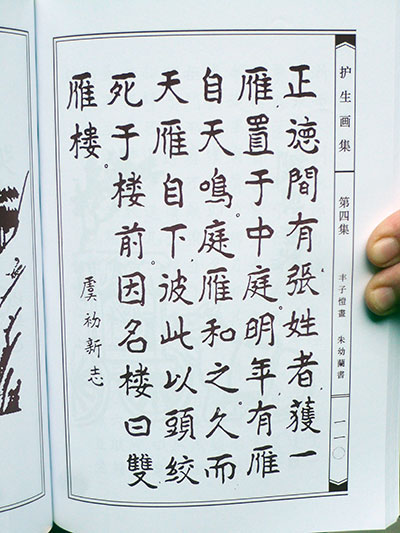 护生画集 第四集 丰子愷畫 朱幼蘭書 一一〇
正德間有張姓者獲一
雁置于中庭。明年有雁
自天鳴庭雁和之。久而
天雁自下彼此以頭絞
死于楼前因名楼曰雙
雁楼。
虞初新志